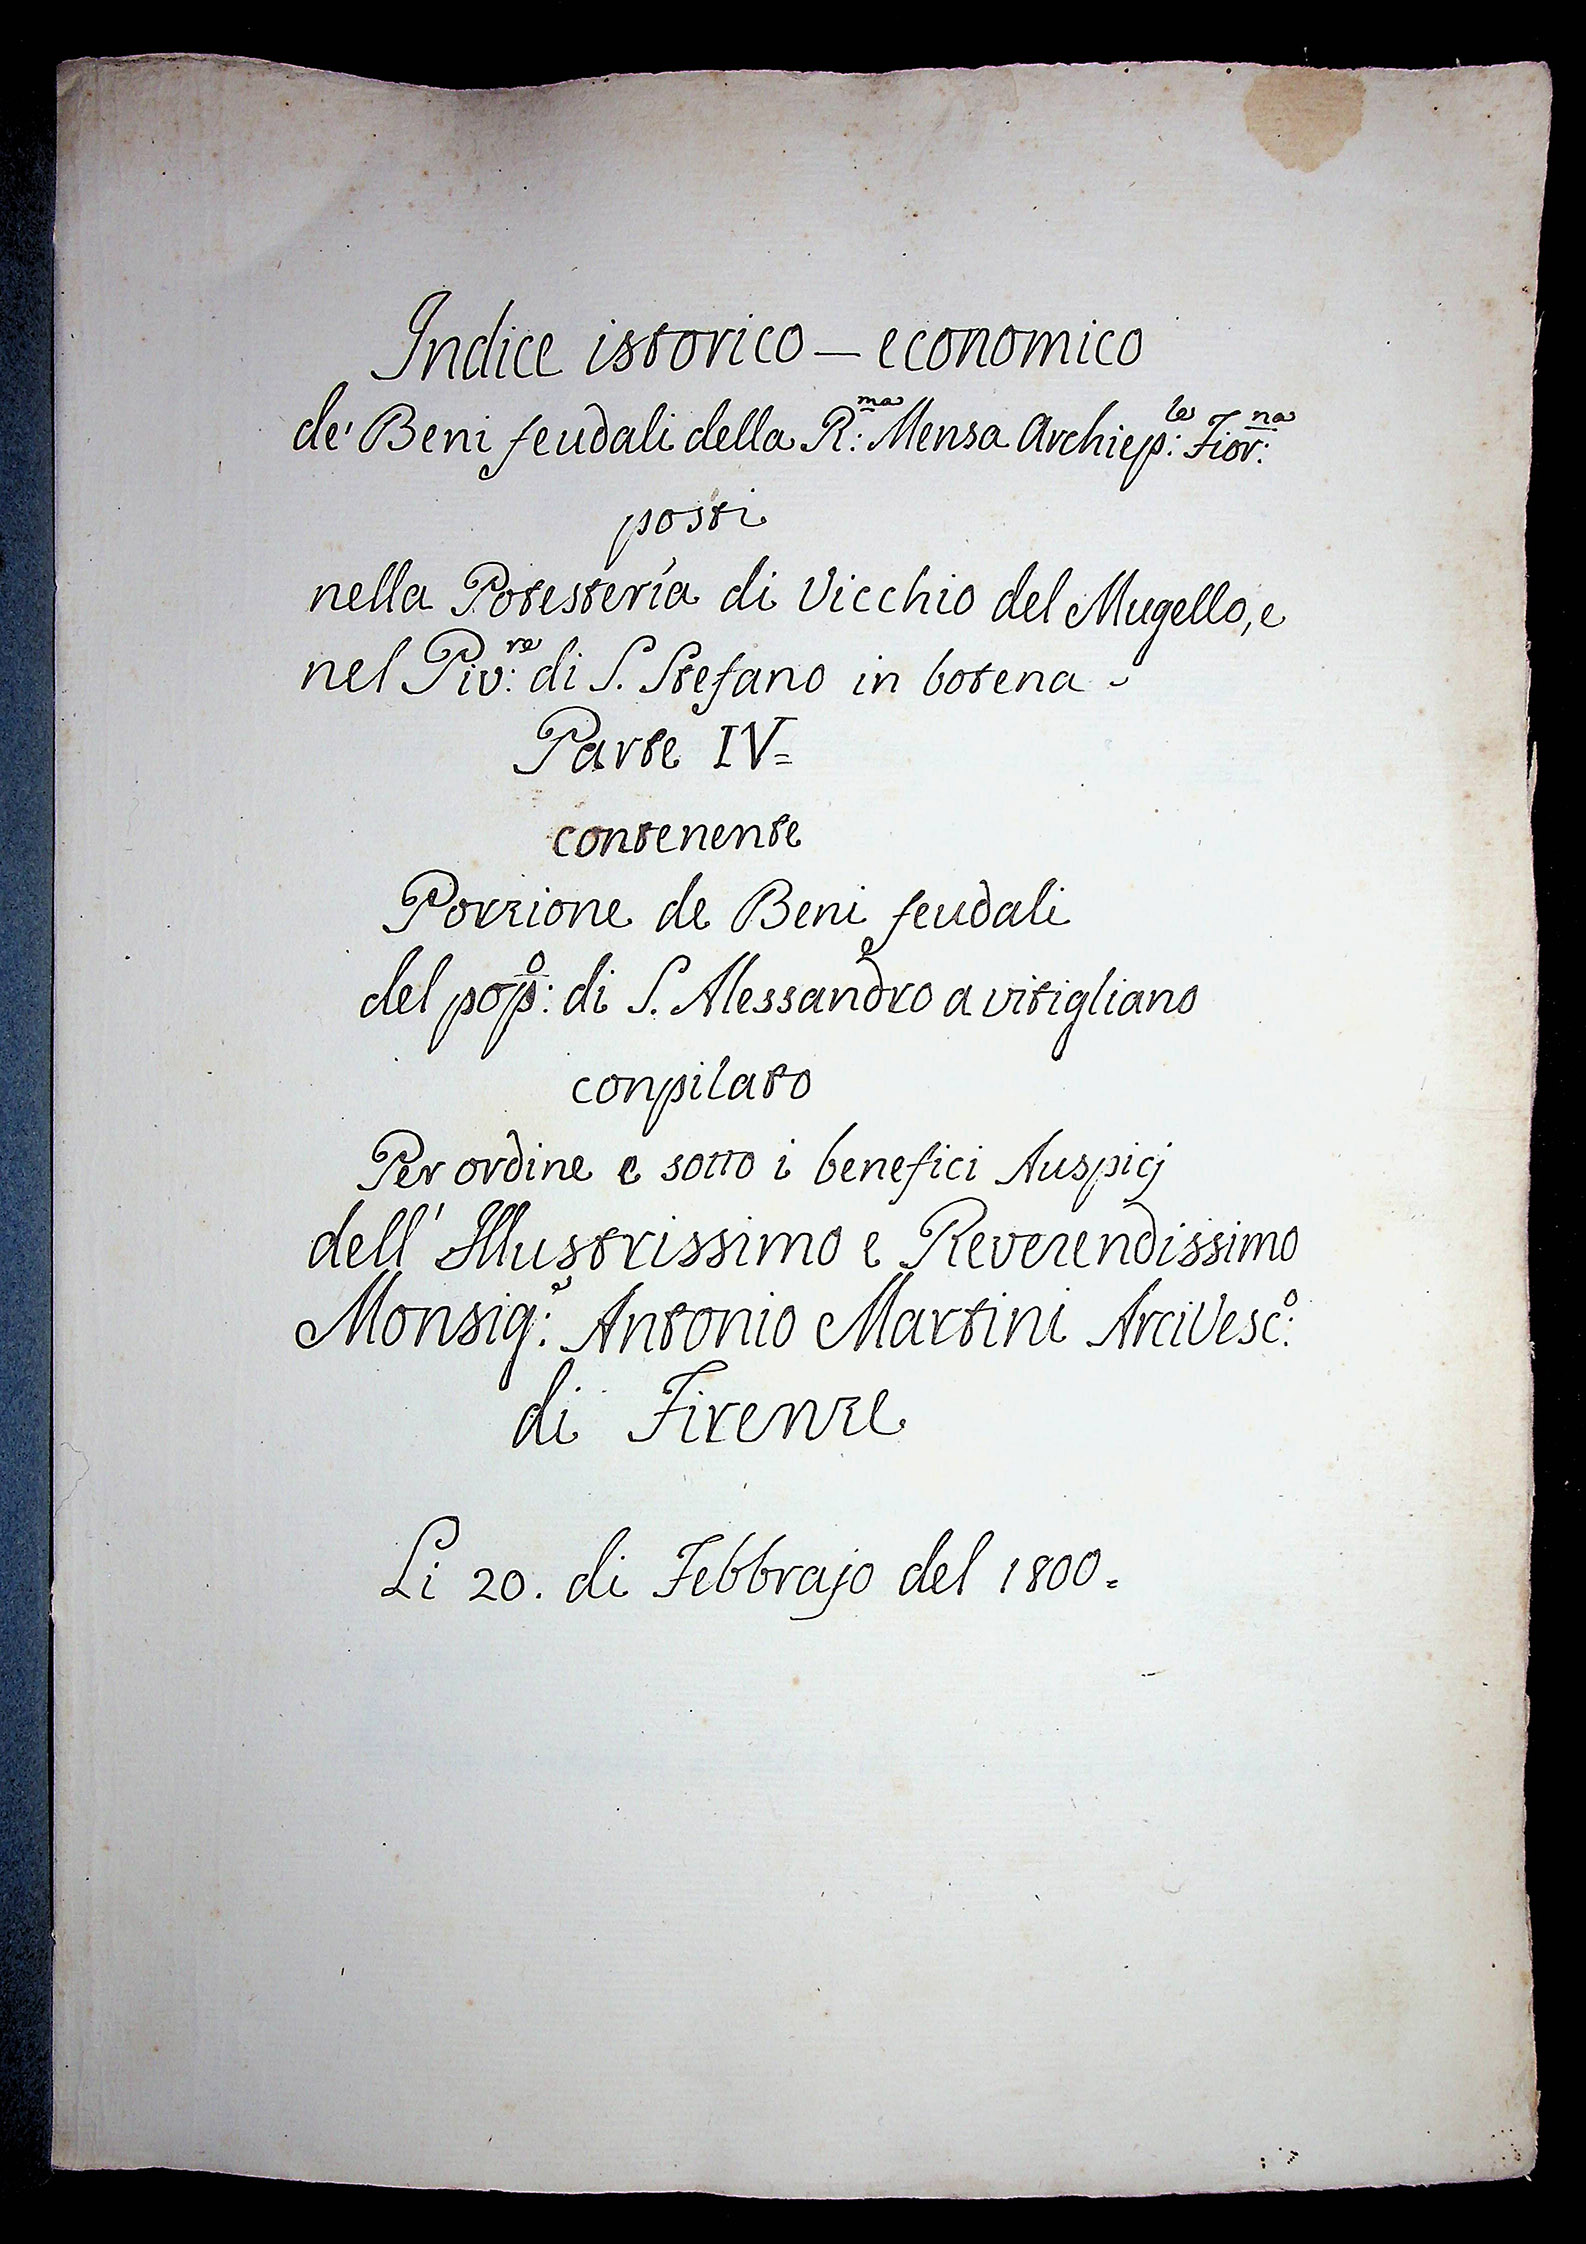 Indice istorico – economico
de' Beni feudali della R:ma Mensa Archiep:le Fior:na
posti
nella Potestería di Vicchio del Mugello, e
nel Piv:re di S. Stefano in botena -
Parte IV =
contenente
Porzione de Beni feudali
del pop:o di S. Alessandro a vitigliano
conpilato
Per ordine e sotto i benefici Auspicj
dell' Illustrissimo e Reverendissimo
Monsig:e Antonio Martini ArciVesc:o
di Firenze
Li 20. di Febbrajo del 1800 =